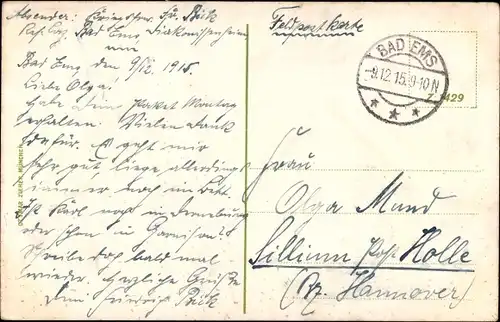 Absender: Kriegsfrw. Fr. Bick
Bad Ems, Diakonissenheim
Feldpostkarte
Bad Ems, den 9/12. 1915.
Liebe Olga!
Habe Dein Paket Montag
erhalten. Vielen Dank
dafür. Es geht mir
sehr gut, liege allerdings
immer noch im Bett
Ist Karl noch in Derneburg
oder schon in Garnison?
Schreibe doch bald mal
wieder. Herzliche Grüße
Dein Friedrich Bick
BAD EMS
9.12.15.9-10 N
Z. 1429
Frau
Olga Mund
Sillium Post Holle
(Pz. Hannover)